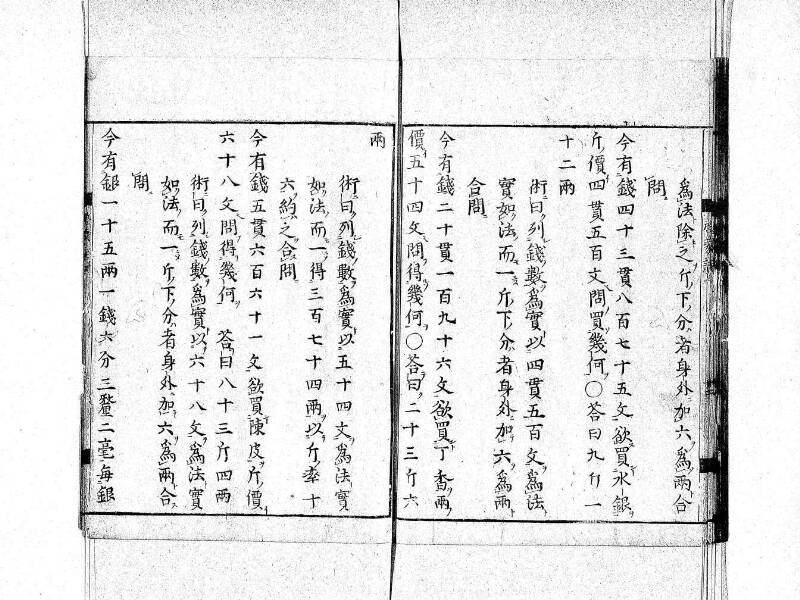 爲法除之斤下分者身外加六爲兩合
問
今有錢四十三貫八百七十五文欲買水銀
斤價四貫五百文問買幾何〇荅曰九斤一
十二兩
術曰列錢數爲實以四貫五百文爲法
實如法而一斤下分者身外加六爲兩
合問
今有錢二十貫一百九十六文欲買丁香兩
價五十四文問得幾何〇荅曰二十三斤六
兩
術曰列錢數爲實以五十四文爲法實
如法而一得三百七十四兩以斤率十
六約之合問
今有錢五貫六百六十一文欲買陳皮斤價
六十八文問得幾何 荅曰八十三斤四兩
術曰列錢數爲實以六十八文爲法實
如法而一斤下分者身外加六爲兩合
問
今有銀一十五兩一錢六分三釐二毫每銀